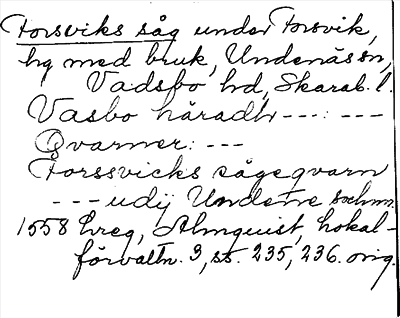 Forsviks såg under Forsvik,
hg med bruk, Undenäs sn,
Vadsbo hd, Skarab. l.
Vasbo häradh ---:---
Qvarner: ---
Forssvicks sågeqvarn
--- udij Undene sochnn.
1558 hreg, Almquist, Lokal-
förvaltn. 3, ss. 235, 236. orig.